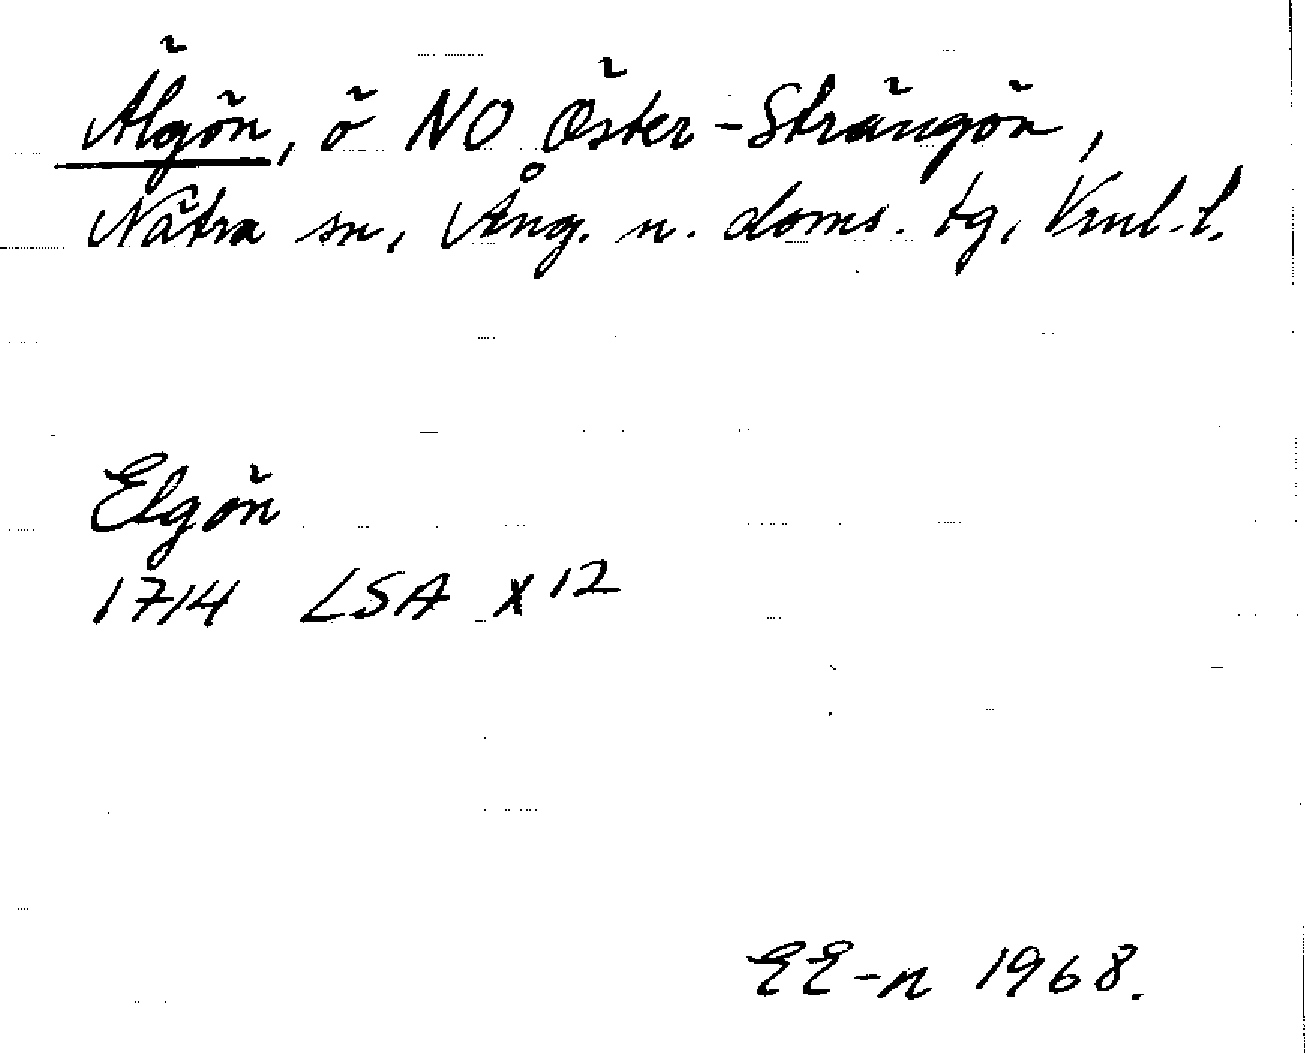 Älgön, ö NO Öster-Strängön,
Nätra sn, Ång. n. doms. tg, Vnl. l.
Elgön
1714 LSA X 12
EE-n 1968.